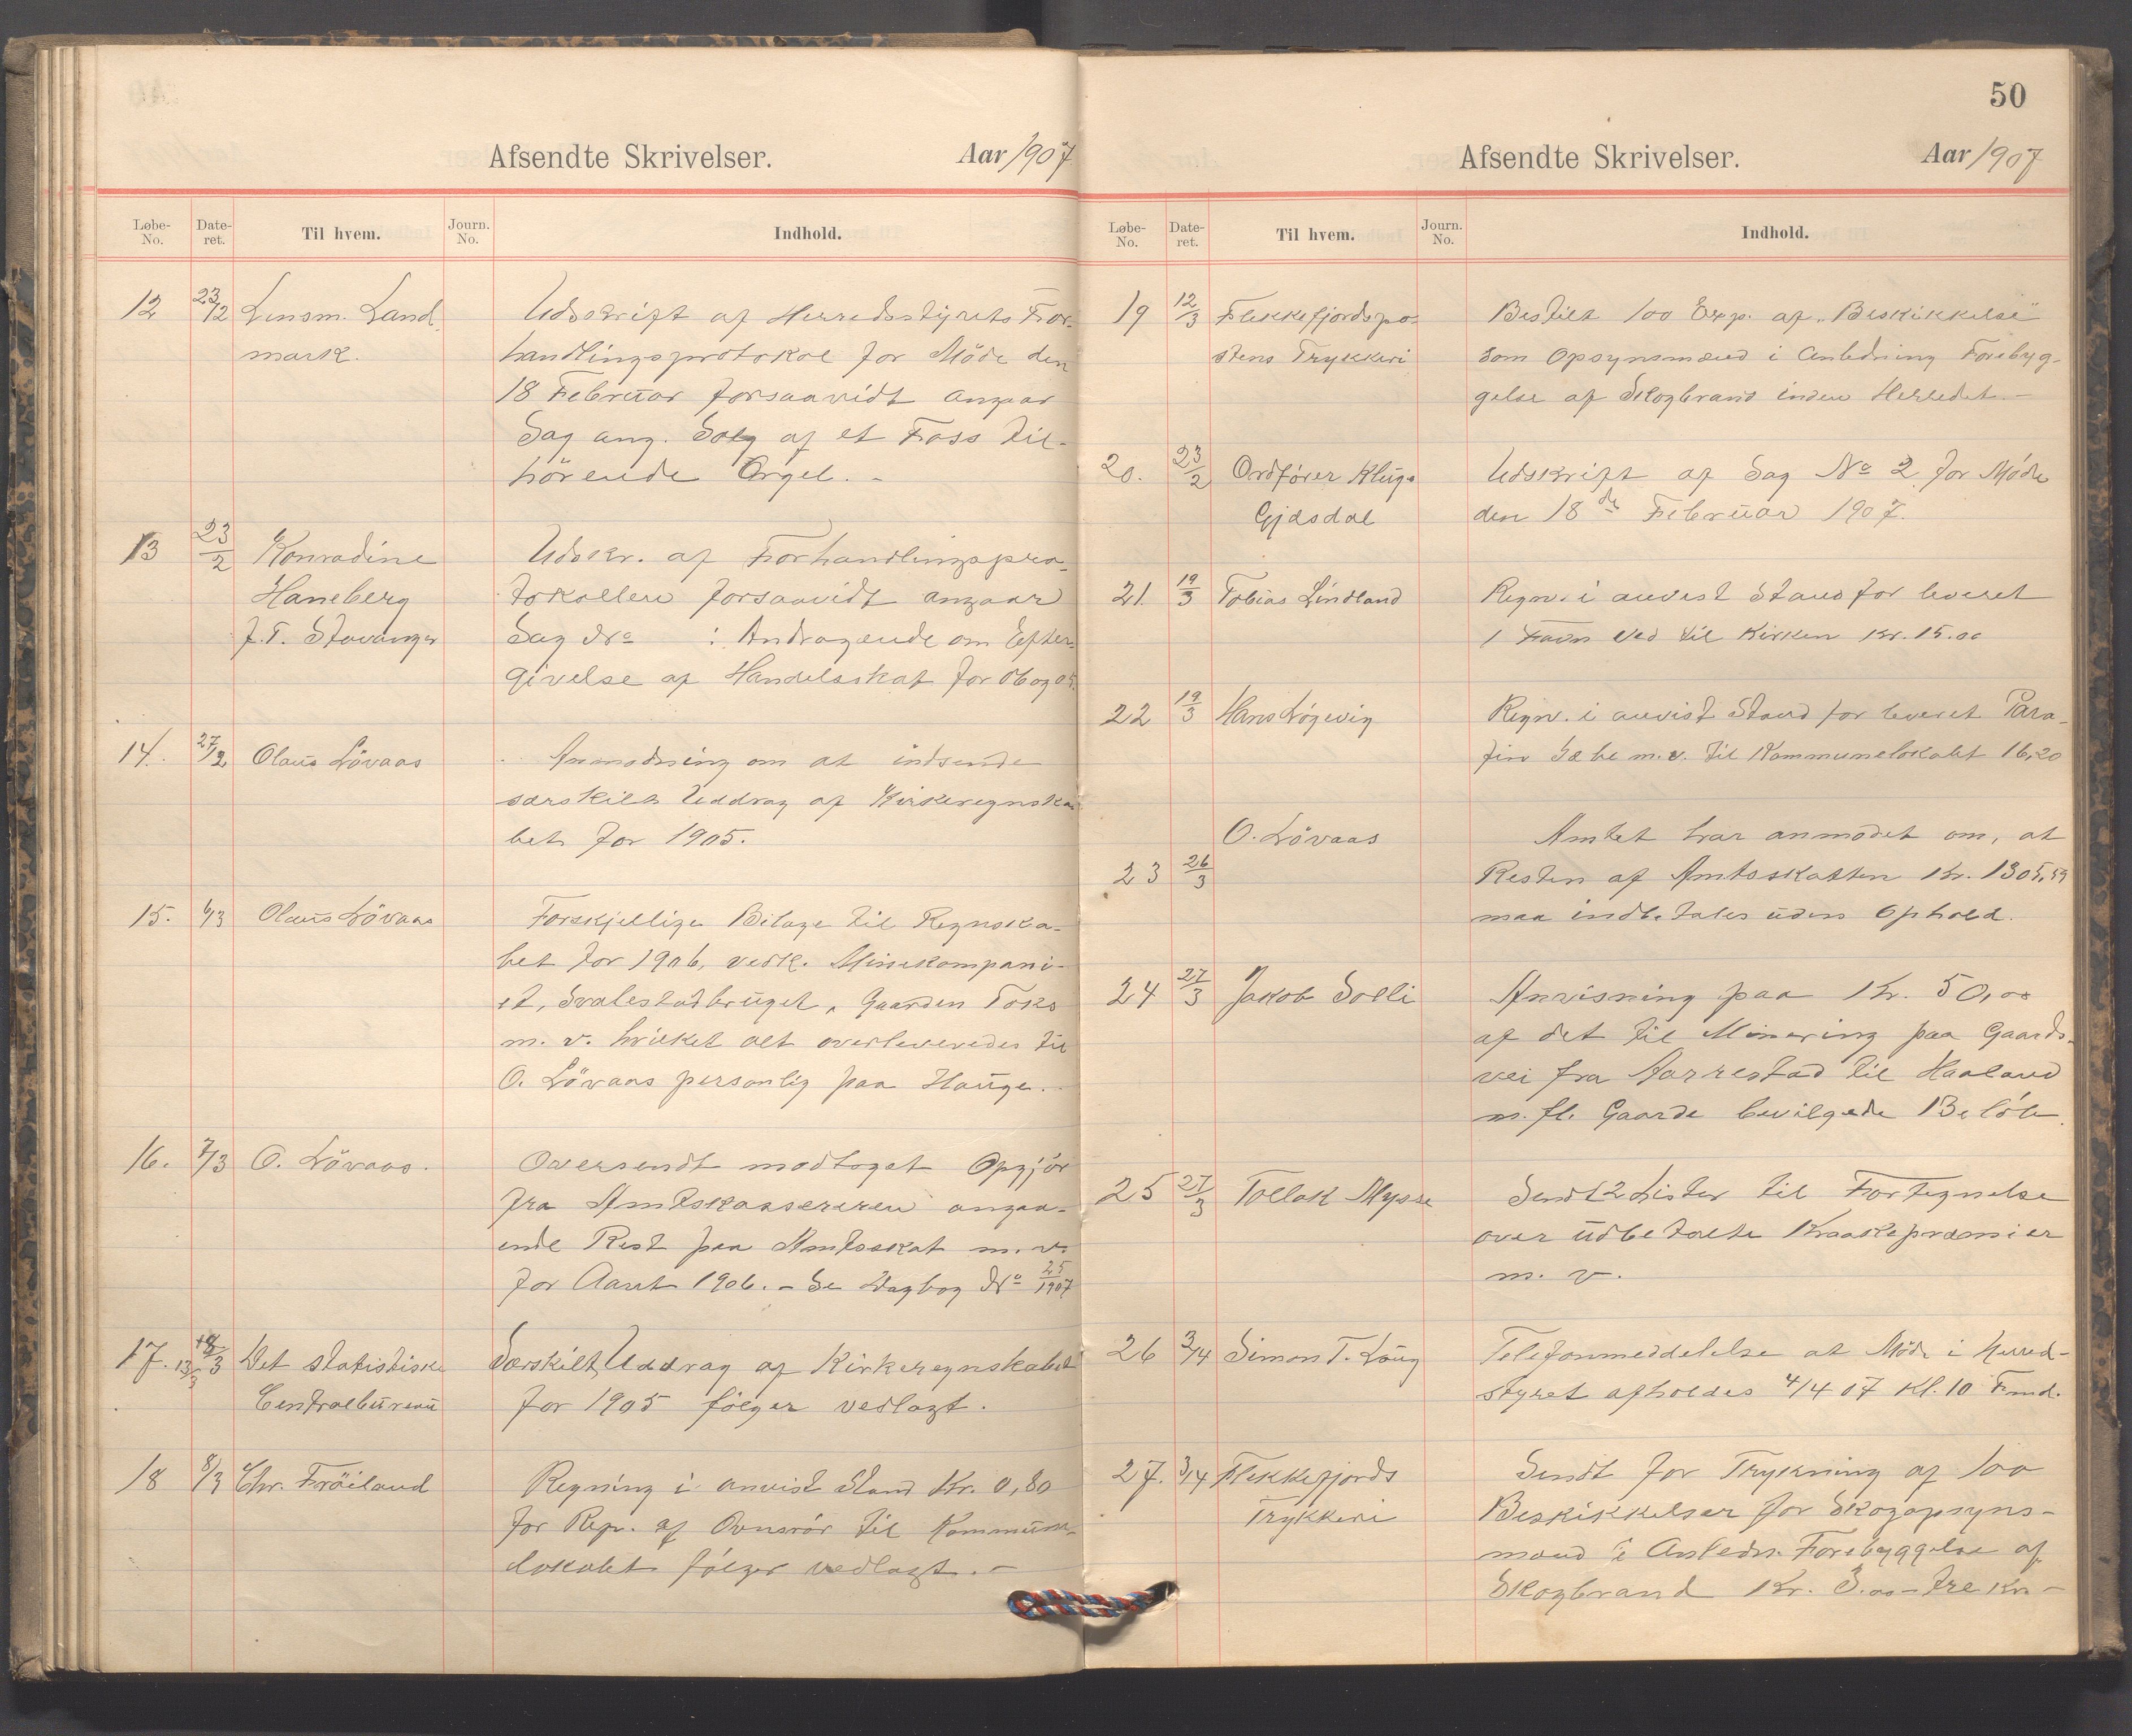 Afsendte Skrivelser. Aar 1907
Løbe-No. Date-ret. Til hvem. Journ. No. Indhold.
12 23/2 Lensm. Land- Udskrift af Herredsstyrets For-
mark. handlingsprotokol for Möde den
18 Februar forsaavidt angaar
Sag ang. Salg af et Foss til-
hörende Orgel. -
13 23/2 Konradine Udskr. af Forhandlingspro-
Haneberg tokollen forsaavidt angaar
f.T. Stavanger Sag No : Andragende om Efter-
givelse af Handelsskat for 06 og 05.
14. 27/2 Olaus Lövaas Anmodning om at indsende
særskilt Uddrag af Kirkeregnska-
bet for 1905.
15. 6/3 Olaus Lövaas Forskjellige Bilage til Regnska-
bet for 1906, vedk. Minekompani-
et, Svalestadbruget, Gaarden Foks
m. v. hvilket alt overleveredes til
O. Lövaas personlig paa Hauge.
16. 7/3 O. Lövaas. Oversendt modtaget Opgjör
fra Amtskassereren angaa-
ende Rest paa Amtsskat m. v.
for Aaret 1906. - Se Dagbog No 25/1907
17. 13/3 Det statistiske Særskilt Uddrag af Kirkeregnskabet
Centralbureau for 1905 fölger vedlagt.
18 8/3 Chr. Fröiland Regning i anvist Stand Kr. 0,80
for Rep. af Ovnsrör til Kommune-
lokalet fölger vedlagt. -
50
Afsendte Skrivelser. Aar 1907
Løbe-No. Date-ret. Til hvem. Journ. No. Indhold.
19 12/3 Flekkefjordspo- Bestilt 100 Exp. af "Beskikkelse"
stens Trykkeri som Opsynsmænd i Anledning Forebyg-
gelse af Skogbrand inden Herredet. -
20. 23/2 Ordförer Udskrift af Sag No 2 for Möde
Gjedsdal den 18de Februar 1907.
21. 19/3 Tobias Lindland Regn. i anvist Stand for leveret
1 Favn Ved til Kirken Kr. 15.00
22 19/3 Hans Lögevig Regn. i anvist Stand for leveret Para-
fin Sæbe m.v. til Kommunelokalet 16,20
O. Lövaas Amtet har anmodet om, at
23 26/3 Resten af Amtsskatten Kr. 1305,59
maa indbetales uden Ophold.
24 27/3 Jakob Solli Anvisning paa Kr. 50,00
af det til Minering paa Gaards-
vei fra Aarrestad til Haaland
m. fl. Gaarde bevilgede Belöb.
25 27/3 Tollak Mysse Sendt 2 Lister til Fortegnelse
over udbetalte Kraakepræmier
m. v.
26 3/4 Simon T. Laug Telefonmeddelelse at Möde i Herred-
styret afholdes 4/4 07 Kl. 10 Fmd.
27. 3/4 Flekkefjords Sendt for Trykning af 100
Trykkeri Beskikkelser for Skogopsyns-
mænd i Anledn. Forebyggelse af
Skogbrand Kr. 3.00 - tre Kr. -